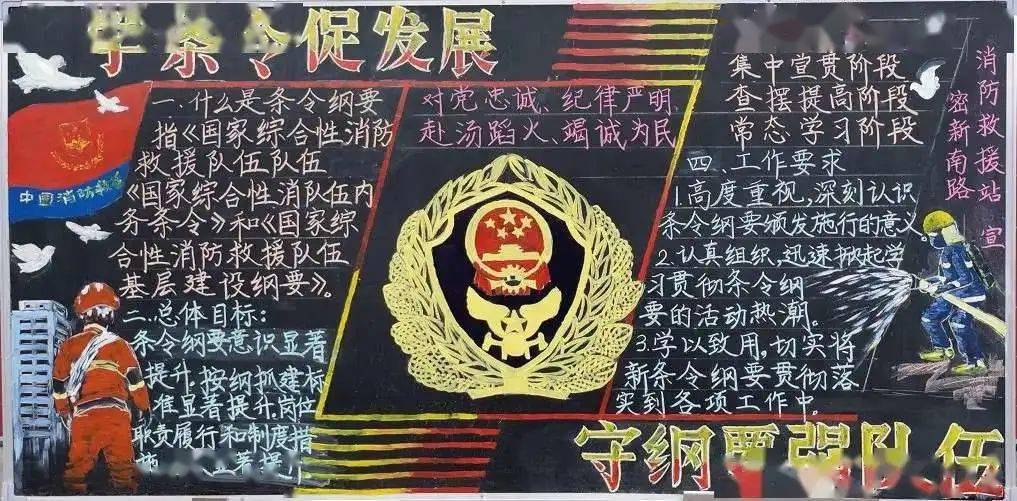 学条令促发展
中国消防救援
一.什么是条令纲要
指《国家综合性消防
救援队伍队伍
《国家综合性消队伍内
务条令》和《国家综
合性消防救援队伍
基层建设纲要》。
二.总体目标:
条令纲要意识显著
提升,按纲抓建标
准显著提升,岗位
职责履行和制度措
对党忠诚、纪律严明、
赴汤蹈火、竭诚为民
集中宣贯阶段
查摆提高阶段
常态学习阶段
四、工作要求
1.高度重视,深刻认识
条令纲要颁发施行的意义
2.认真组织,迅速掀起学
习贯彻条令纲
要的活动热潮。
3.学以致用,切实将
新条令纲要贯彻落
实到各项工作中。
密新南路
消防救援站 宣
守纲要强队伍